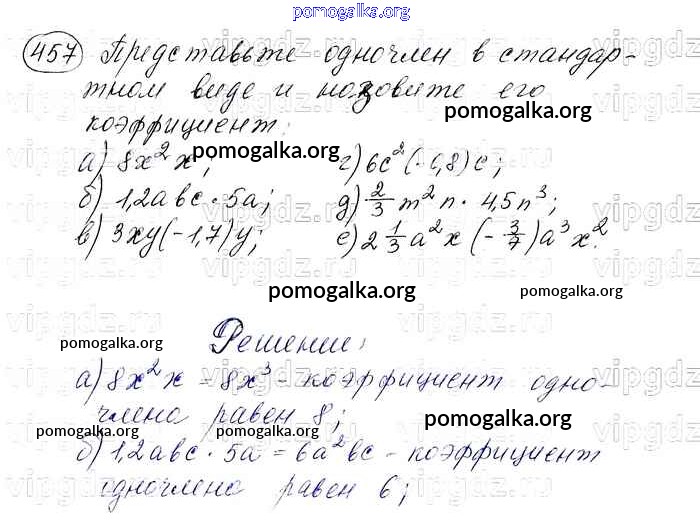 pomogalka.org
457 Представьте одночлен в стандар-
тном виде и назовите его
pomogalka.org
коэффициент:
pomogalka.org
а) 8x²x; г) 6c²(-0,8)c;
б) 1,2abc · 5a; д) 2/3 m²n · 4,5n³;
в) 3xy(-1,7)y; е) 2 1/3 a²x(-3/7)a³x².
pomogalka.org pomogalka.org
Решение:
pomogalka.org
а) 8x²x = 8x³ - коэффициент одно-
члена равен 8;
pomogalka.org pomogalka.org pomogalka.org
б) 1,2abc · 5a = 6a²bc - коэффициент
одночлена равен 6;
vipgdz.ru